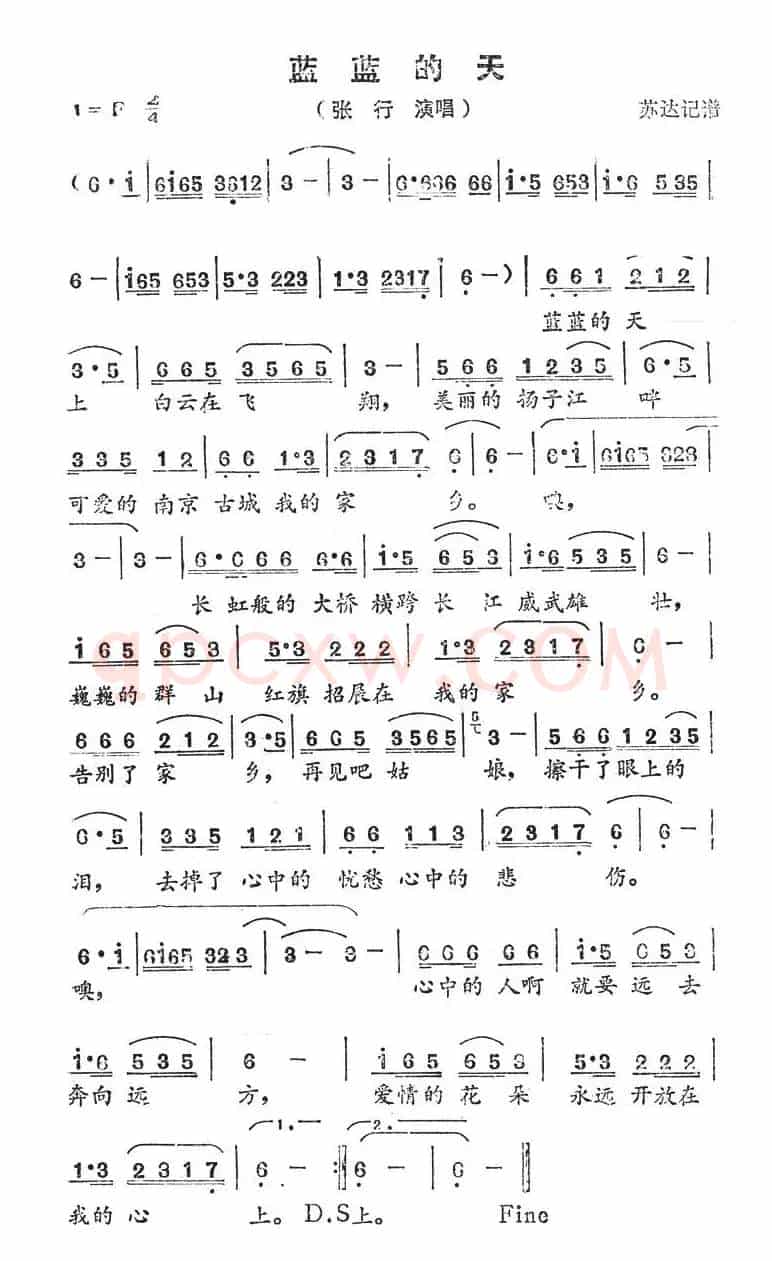 蓝 蓝 的 天
1=F 2/4 （张 行 演唱） 苏达记谱
(6·i | 6i65 3612 | 3 — | 3 — | 6·666 66 | i·5 653 | i·6 535 |
6 — | i65 653 | 5·3 223 | 1·3 2317 | 6 —) | 661 212 |
蓝蓝的 天
3·5 | 665 3565 | 3 — | 566 1235 | 6·5 |
上 白云在 飞 翔， 美丽的 扬子江 畔
335 12 | 66 1·3 | 2317 6 | 6 — | 6·i | 6i65 323 |
可爱的 南京 古城 我的 家 乡。 噢，
3 — | 3 — | 6·666 6·6 | i·5 653 | i·6 535 | 6 — |
长 虹般的 大桥 横跨 长 江 威武雄 壮，
i65 653 | 5·3 222 | 1·3 2317 | 6 — |
巍巍的 群 山 红旗 招展在 我的 家 乡。
666 212 | 3·5 | 665 3565 | 3 — | 566 1235 |
告别了 家 乡， 再见吧 姑 娘， 擦干了 眼上的
6·5 | 335 121 | 66 113 | 2317 6 | 6 — |
泪， 去掉了 心中的 忧愁 心中的 悲 伤。
6·i | 6i65 323 | 3 — | 3 — | 666 66 | i·5 653 |
噢， 心中的 人啊 就要 远 去
i·6 535 | 6 — | i65 653 | 5·3 222 |
奔向 远 方， 爱情的 花 朵 永远 开放在
1. 2.
1·3 2317 | 6 — :‖ 6 — | 6 — ‖
我的 心 上。 D.S上。 Fine
qpcxw.COM